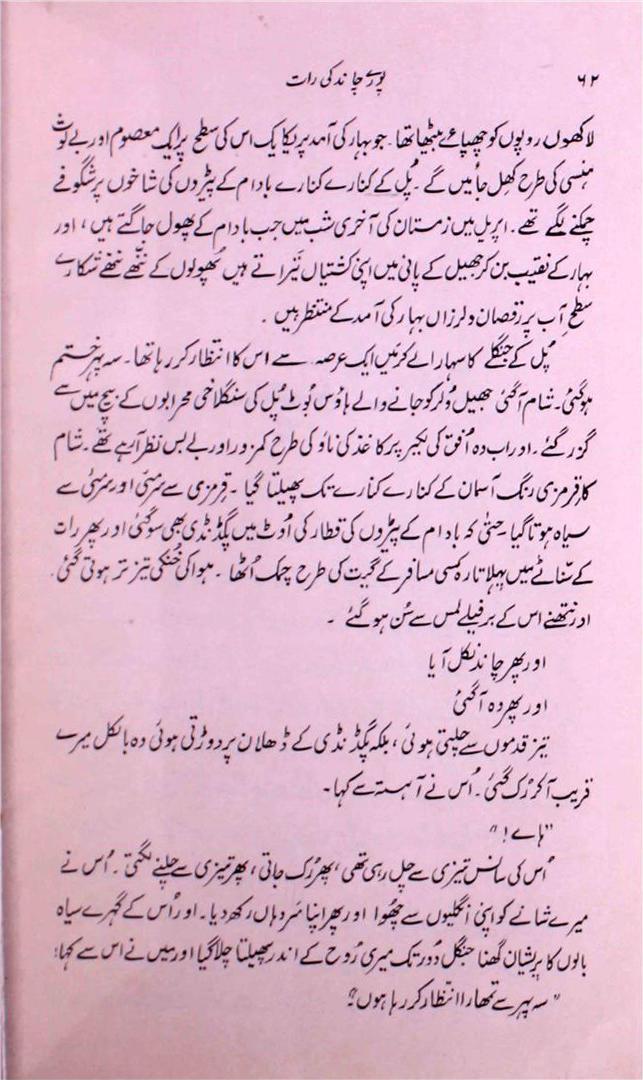 ۶۲ پورے چاند کی رات
لاکھوں روپوں کو چھپائے بیٹھا تھا۔ جو بہار کی آمد پر یکایک اس کی سطح پر ایک معصوم اور بے لوث
ہنسی کی طرح کھل جائیں گے۔ پُل کے کنارے کنارے بادام کے پیڑوں کی شاخوں پر شگوفے
چمکنے لگے تھے۔ اپریل میں زمستان کی آخری شب میں جب بادام کے پھول جاگتے ہیں، اور
بہار کے نقیب بن کر جھیل کے پانی میں اپنی کشتیاں تیراتے ہیں پُھولوں کے ننّھے ننّھے شکارے
سطحِ آب پر رقصاں و لرزاں بہار کی آمد کے منتظر ہیں۔
پُل کے جنگلے کا سہارا لے کر میں ایک عرصہ سے اس کا انتظار کر رہا تھا۔ سہ پہر ختم
ہو گئی۔ شام آ گئی جھیل وُلر کو جانے والے ہاؤس بُوٹ پُل کی سنگلاخی محرابوں کے بیچ میں سے
گزر گئے۔ اور اب وہ اُفق کی لکیر پر کاغذ کی ناؤ کی طرح کمزور اور بے بس نظر آ رہے تھے۔ شام
کا قرمزی رنگ آسمان کے کنارے کنارے تک پھیلتا گیا۔ قرمزی سے سُرمئی اور سُرمئی سے
سیاہ ہوتا گیا۔ حتٰی کہ بادام کے پیڑوں کی قطار کی اُوٹ میں پگڈنڈی بھی سو گئی اور پھر رات
کے سنّاٹے میں پہلا تارہ کسی مسافر کے گیت کی طرح چمک اُٹھا۔ ہوا کی خُنکی تیز تر ہوتی گئی۔
اور نتھنے اس کے برفیلے لمس سے سُن ہو گئے۔
اور پھر چاند نکل آیا
اور پھر وہ آ گئی
تیز قدموں سے چلتی ہوئی، بلکہ پگڈنڈی کے ڈھلان پر دوڑتی ہوئی وہ بالکل میرے
قریب آ کر رُک گئی۔ اُس نے آہستہ سے کہا۔
"ہائے!"
اُس کی سانس تیزی سے چل رہی تھی، پھر رُک جاتی، پھر تیزی سے چلنے لگتی۔ اُس نے
میرے شانے کو اپنی اُنگلیوں سے چھُوا اور پھر اپنا سَر وہاں رکھ دیا۔ اور اُس کے گہرے سیاہ
بالوں کا پریشان گھنا جنگل دُور تک میری رُوح کے اندر پھیلتا چلا گیا اور میں نے اس سے کہا؛
"سہ پہر سے تمھارا انتظار کر رہا ہوں"؟